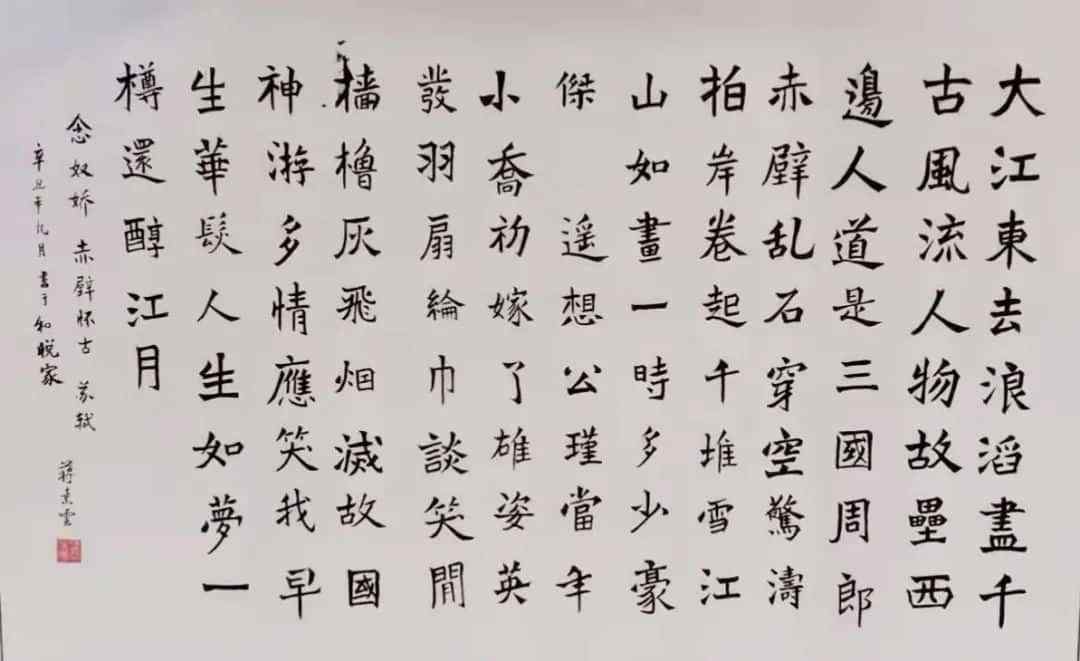 大江東去浪滔盡千
古風流人物故壘西
邊人道是三國周郎
赤壁乱石穿空驚濤
柏岸卷起千堆雪江
山如畫一時多少豪
傑 遥想公瑾當年
小喬初嫁了雄姿英
發羽扇綸巾談笑間
檣櫓灰飛烟滅故國
神游多情應笑我早
生華髮人生如夢一
樽還醇江月
念奴娇 赤壁怀古 苏轼
辛丑年九月書于和悦家
蒋雲